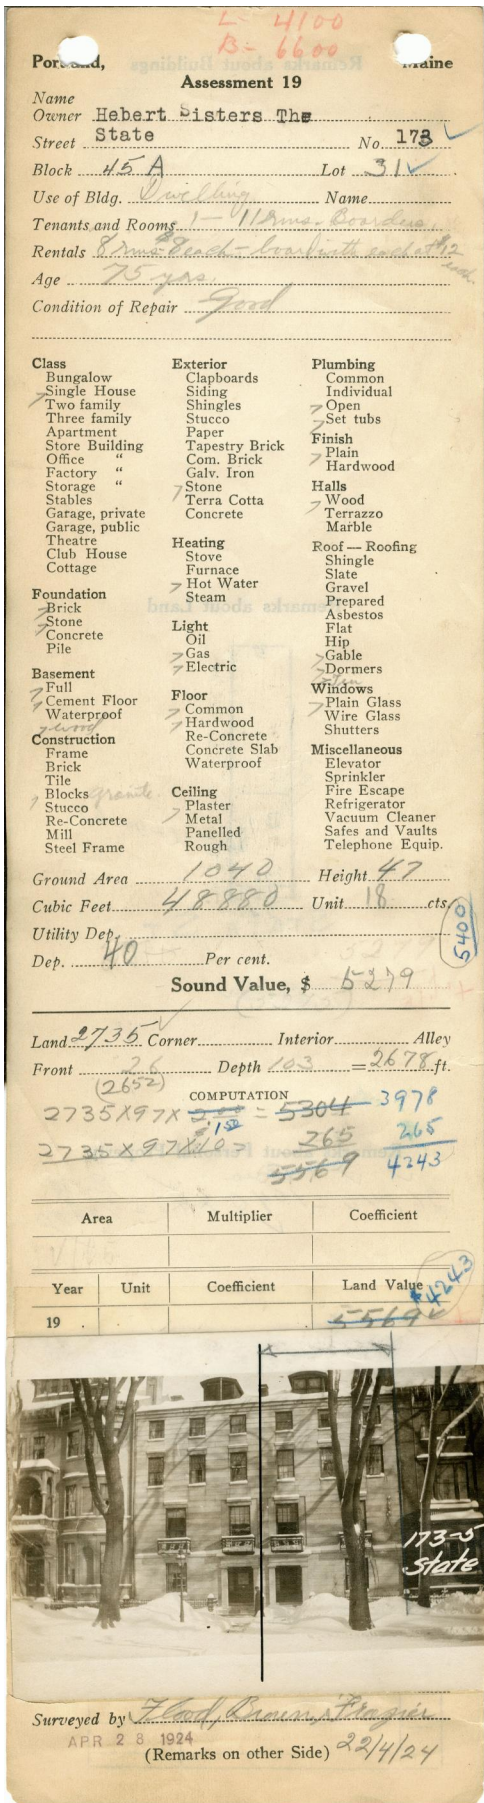 L= 4100
B= 6600
Portland, Maine
Assessment 19
Name
Owner Hebert Sisters The
Street State No. 173
Block 45 A Lot 31
Use of Bldg. Dwelling Name
Tenants and Rooms 1 - 11 rms - Boarders
Rentals 8 rms $8 each - board with each at $12 each
Age 75 yrs.
Condition of Repair Good
Class
Bungalow
Single House
Two family
Three family
Apartment
Store Building
Office "
Factory "
Storage "
Stables
Garage, private
Garage, public
Theatre
Club House
Cottage
Foundation
Brick
Stone
Concrete
Pile
Basement
Full
Cement Floor
Waterproof
wood
Construction
Frame
Brick
Tile
Blocks granite
Stucco
Re-Concrete
Mill
Steel Frame
Exterior
Clapboards
Siding
Shingles
Stucco
Paper
Tapestry Brick
Com. Brick
Galv. Iron
Stone
Terra Cotta
Concrete
Heating
Stove
Furnace
Hot Water
Steam
Light
Oil
Gas
Electric
Floor
Common
Hardwood
Re-Concrete
Concrete Slab
Waterproof
Ceiling
Plaster
Metal
Panelled
Rough
Plumbing
Common
Individual
Open
Set tubs
Finish
Plain
Hardwood
Halls
Wood
Terrazzo
Marble
Roof — Roofing
Shingle
Slate
Gravel
Prepared
Asbestos
Flat
Hip
Gable
Dormers
Windows
Plain Glass
Wire Glass
Shutters
Miscellaneous
Elevator
Sprinkler
Fire Escape
Refrigerator
Vacuum Cleaner
Safes and Vaults
Telephone Equip.
Ground Area 1040 Height 47
Cubic Feet 48880 Unit 18 cts.
5400
Utility Dep.
Dep. 40 Per cent.
Sound Value, $ 5279
Land 2735 Corner Interior Alley
Front 26 Depth 103 = 2678 ft.
(2652)
COMPUTATION
2735 X 97 X 2.00 = 5304 3978
1.50
2735 X 97 X 10 = 265 265
5569 4243
Area Multiplier Coefficient
Year Unit Coefficient Land Value
$4243
19 5569
173-5
State
Surveyed by Flood, Brown, Frazier
APR 28 1924
(Remarks on other Side) 22/4/24